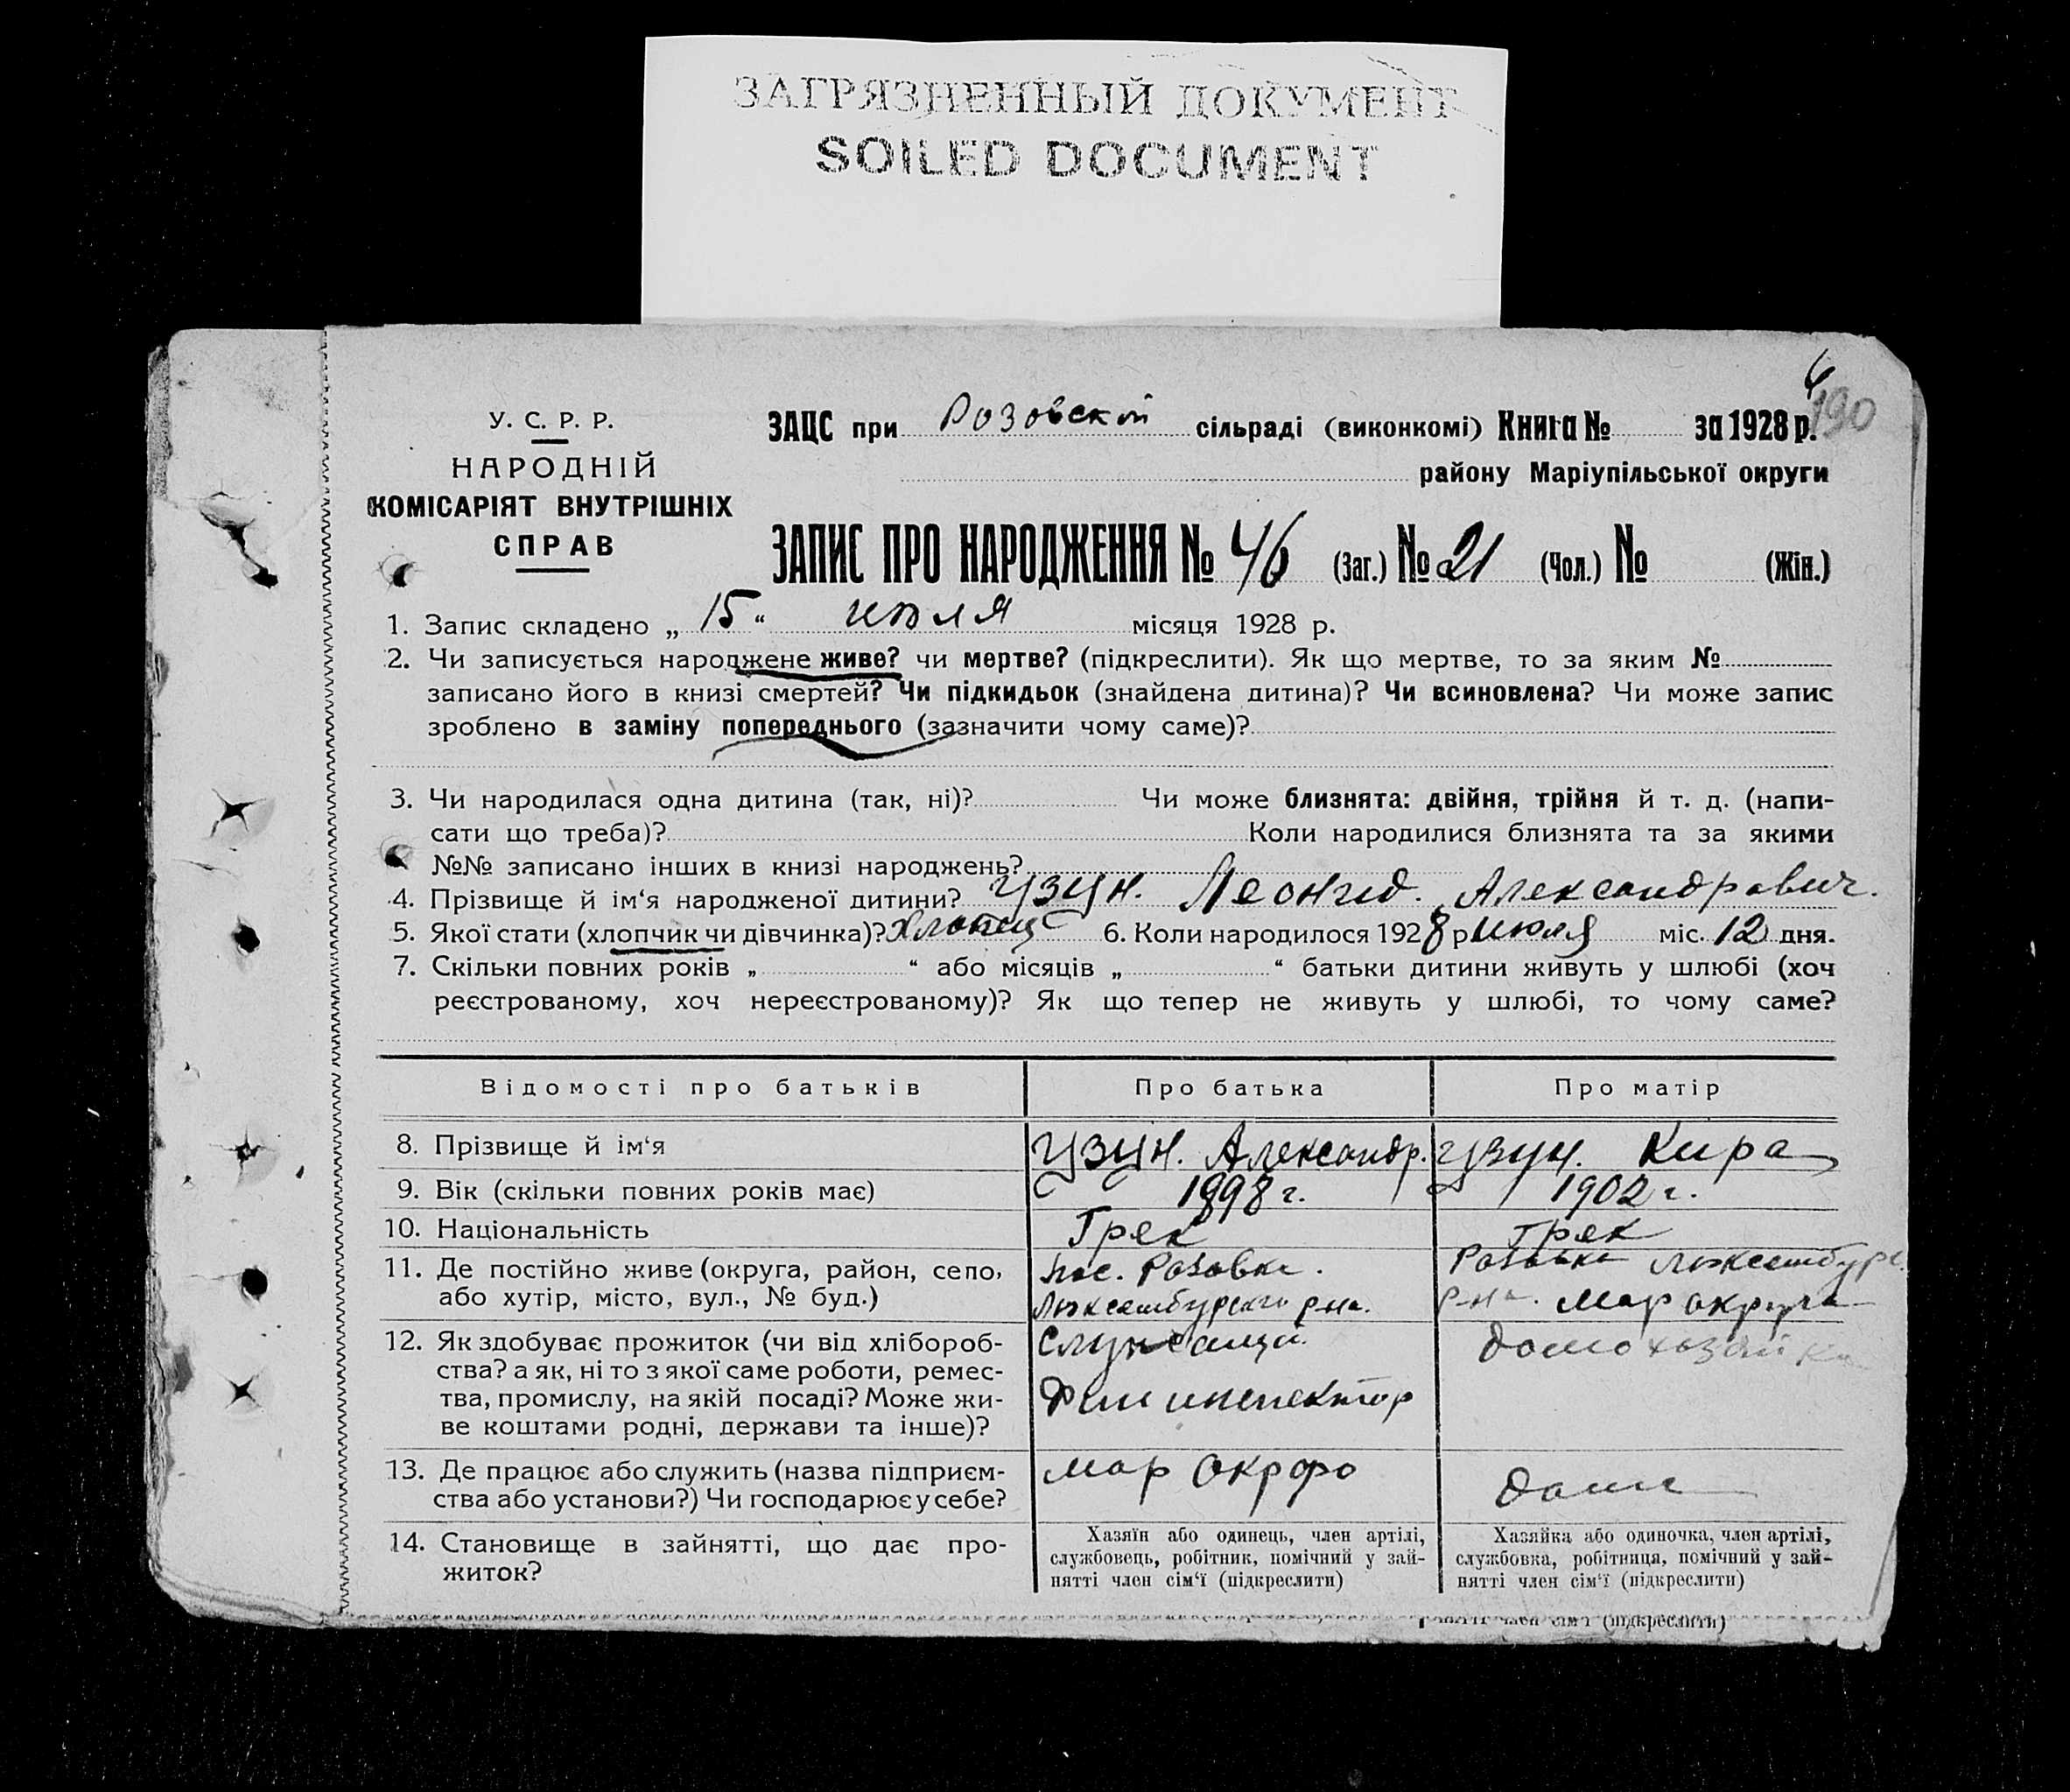 ЗАГРЯЗНЕННЫЙ ДОКУМЕНТ
SOILED DOCUMENT
190
У. С. Р. Р.
НАРОДНІЙ
КОМІСАРІЯТ ВНУТРІШНІХ
СПРАВ
ЗАЦС при Розовской сільраді (виконкомі) Книга № за 1928 р.
району Маріупільської округи
ЗАПИС ПРО НАРОДЖЕННЯ № 46 (Заг.) № 21 (Чол.) № (Жін.)
1. Запис складено „ 15 “ июля місяця 1928 р.
2. Чи записується народжене живе? чи мертве? (підкреслити). Як що мертве, то за яким №
записано його в книзі смертей? Чи підкидьок (знайдена дитина)? Чи всиновлена? Чи може запис
зроблено в заміну попереднього (зазначити чому саме)?
3. Чи народилася одна дитина (так, ні)? Чи може близнята: двійня, трійня й т. д. (напи-
сати що треба)? Коли народилися близнята та за якими
№№ записано інших в книзі народжень?
4. Прізвище й ім‘я народженої дитини? Узун. Леонид. Александрович.
5. Якої стати (хлопчик чи дівчинка)? Хлопец 6. Коли народилося 1928 р июля міс. 12 дня.
7. Скільки повних років „ “ або місяців „ “ батьки дитини живуть у шлюбі (хоч
реєстрованому, хоч нереєстрованому)? Як що тепер не живуть у шлюбі, то чому саме?
Відомості про батьків Про батька Про матір
8. Прізвище й ім‘я Узун. Александр. Узун. Кира
9. Вік (скільки повних років має) 1898 г. 1902 г.
10. Національність Грек Грек
11. Де постійно живе (округа, район, село,
або хутір, місто, вул., № буд.)
пос. Розовка.
Люксембургского р-на.
Розовка Люксембург.
р-на. Мар округа
12. Як здобуває прожиток (чи від хлібороб-
ства? а як, ні то з якої саме роботи, ремес-
тва, промислу, на якій посаді? Може жи-
ве коштами родні, держави та інше)?
Служащий
Фин инспектор
Домохозяйка
13. Де працює або служить (назва підприєм-
ства або установи?) Чи господарює у себе?
Мар Окрфо
Дома
14. Становище в зайнятті, що дає про-
житок?
Хазяїн або одинець, член артілі,
службовець, робітник, помічний у зай-
нятті член сім‘ї (підкреслити)
Хазяйка або одиночка, член артілі,
службовка, робітниця, помічний у зай-
нятті член сім‘ї (підкреслити)
член сім‘ї (підкреслити)